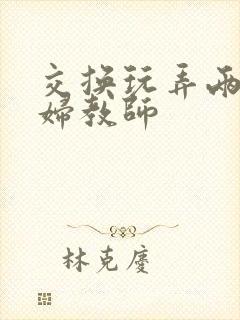 交換玩弄兩
婦教師
林克慶